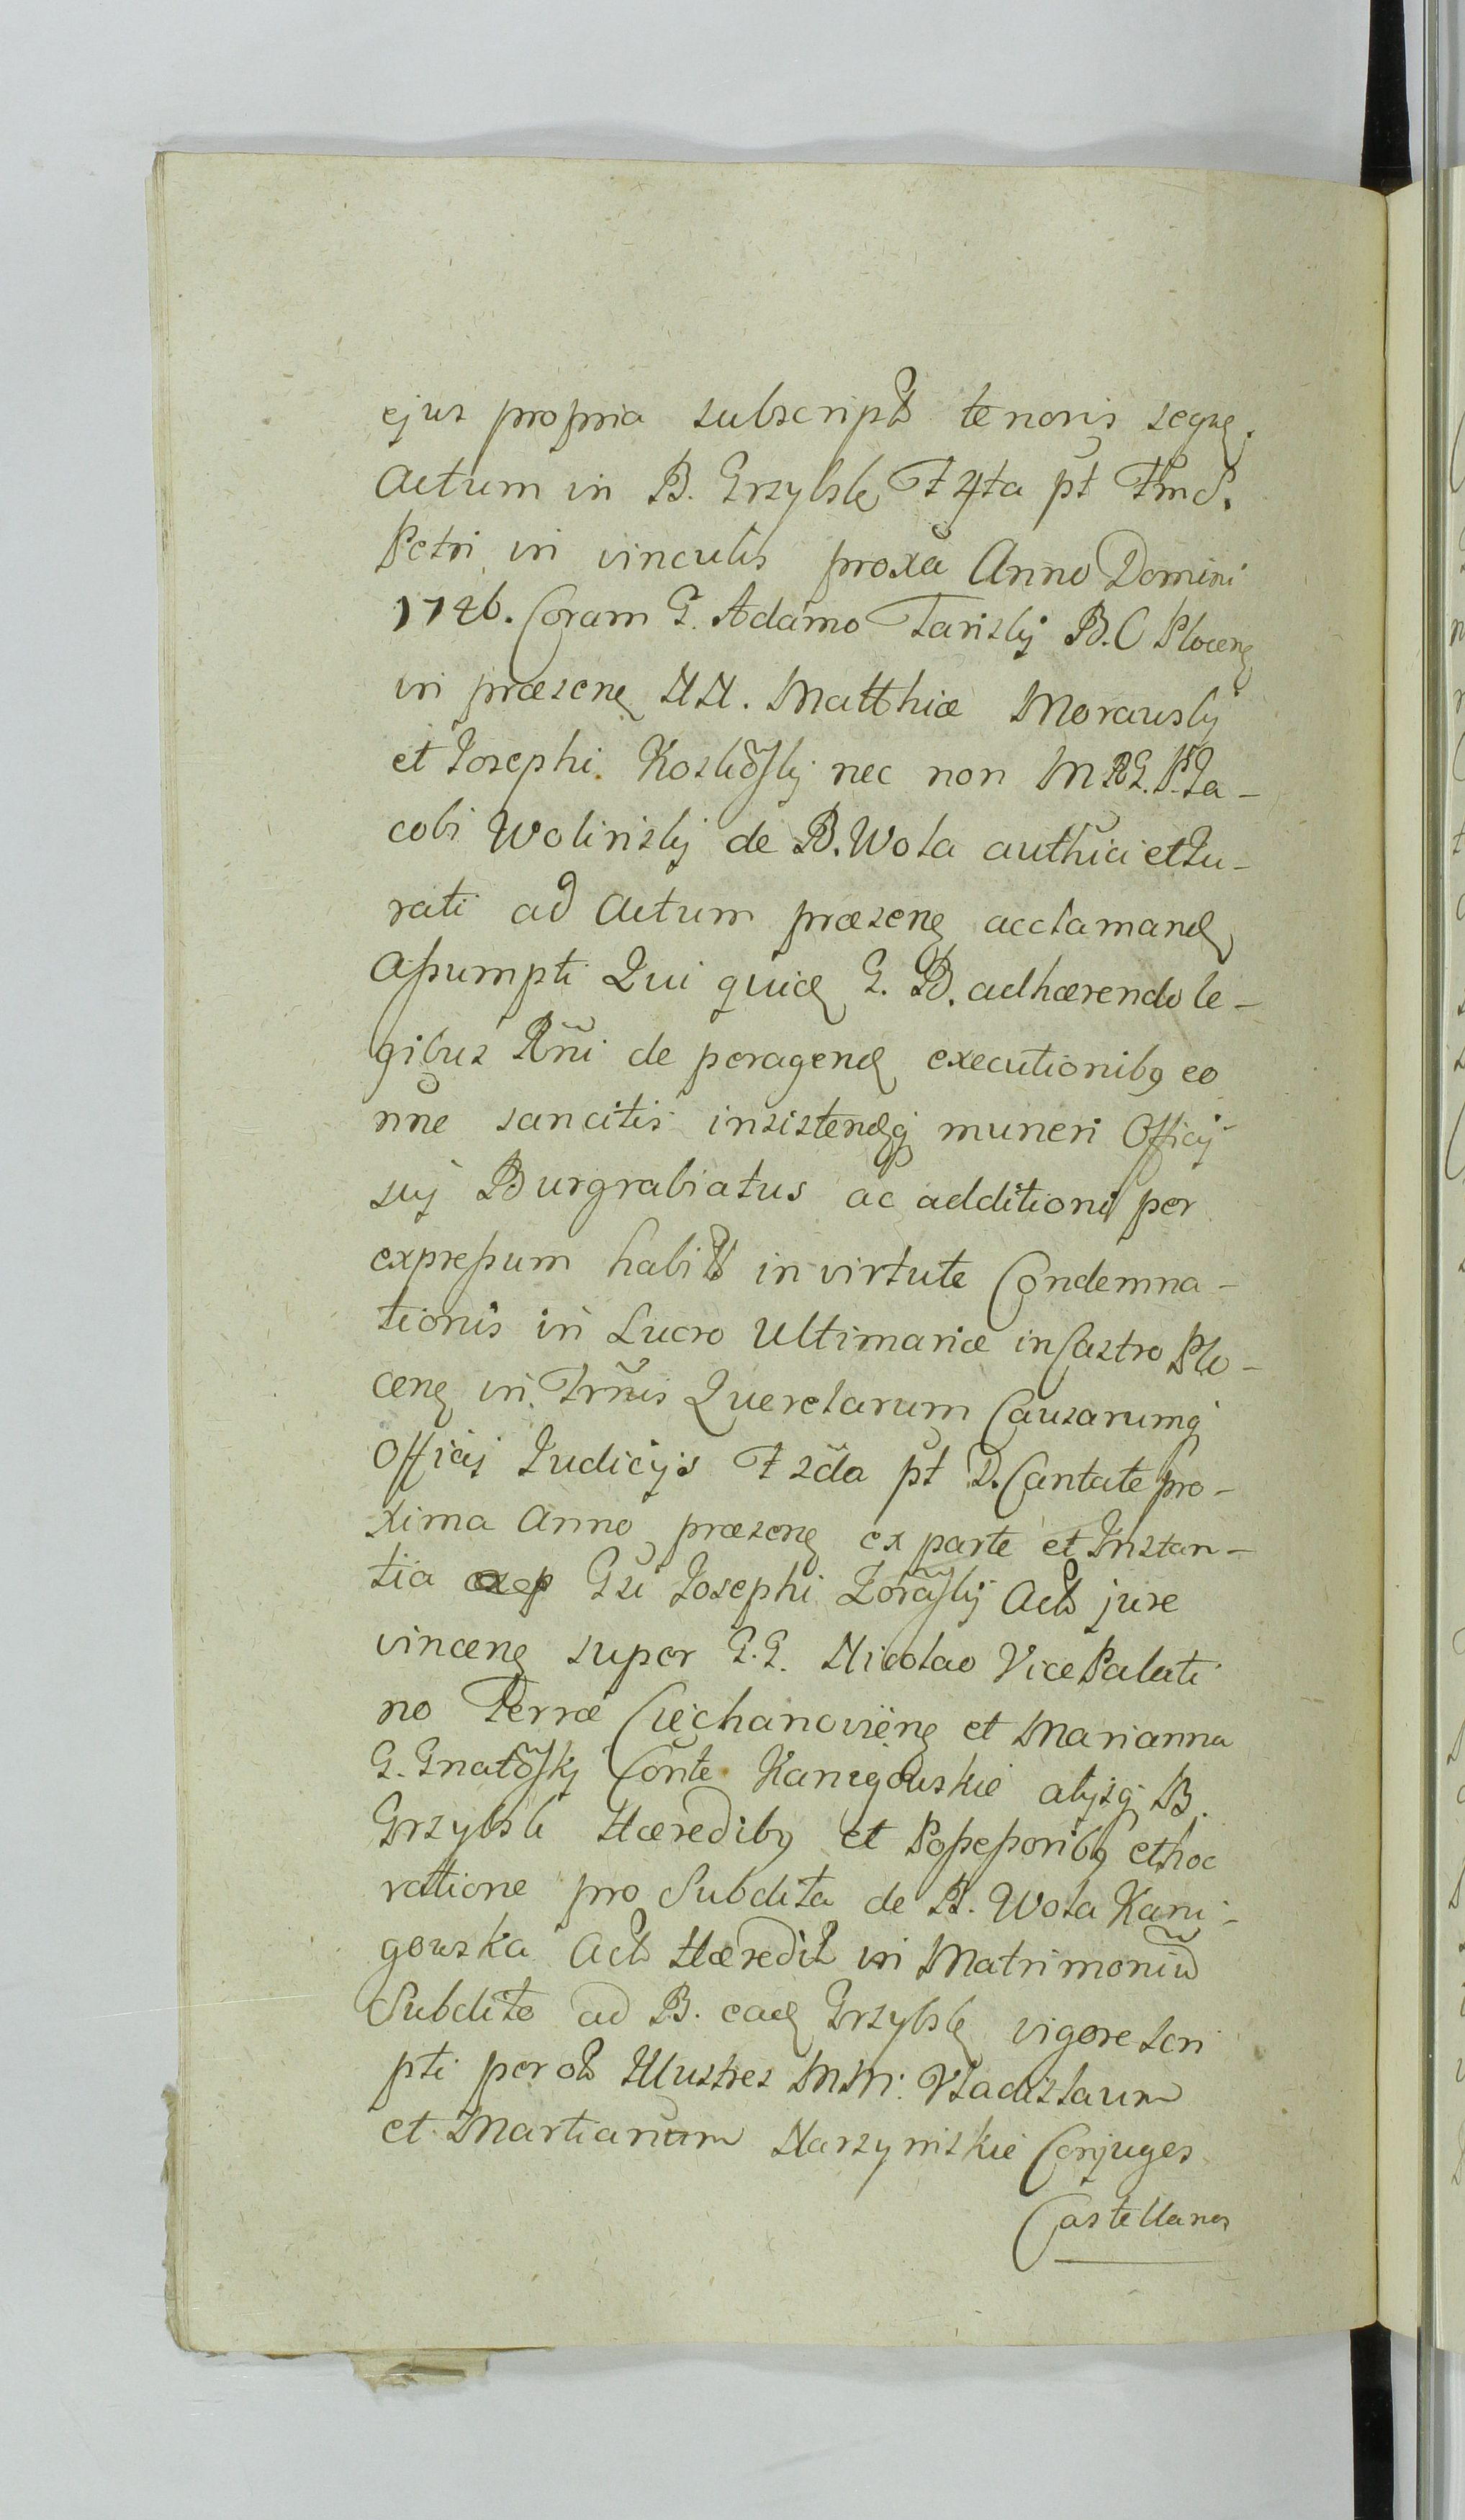 ejus propria subscript tenoris seque.
Actum in B. Grzybsk F 4ta pt Fm S.
Petri in vinculis proxa Anno Domini
1746. Coram G. Adamo Tarisky B. C Plocen
in præsen NN. Matthiæ Morawsky
et Josephi Koskowsky nec non MRG. P. Ja-
cobi Wolinsky de B. Wola authici et Ju-
rati ad Actum præsen acclamand
Assumpti Qui quid G. B. adhærendo le-
gibus Rñi de peragend executionibq eo
nñe sancitis insistendoq muneri Officij
suj Burgrabiatus ac additioni per
expressum habit in virtute Condemna-
tionis in Lucro Ultimariæ in Castro Plo-
cen in Trñis Querelarum Causarumq
Officij Judicijs F 2da pt D. Cantate pro-
xima Anno præsen ex parte et Instan-
tia Gsi Josephi Zorawsky Act jure
vincen super G. G. Nicolao Vice Palati
no Terræ Ciechanovien et Marianna
G. Gnatowsky Conte Kanigowskie alysq B.
Grzybsk Hæredibq et Possessoribq et hoc
ratione pro Subdita de B. Wola Kani-
gowska Act Hæredit in Matrimoniu
Subdito ad B. ead Grzybsk vigore scri
pti per ob Illustres MM. Vladislaum
et Martianum Narzymskie Conjuges
Castellanos